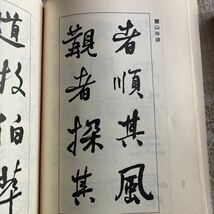 麓山寺碑
者順其風
觀者探其
道牧伯